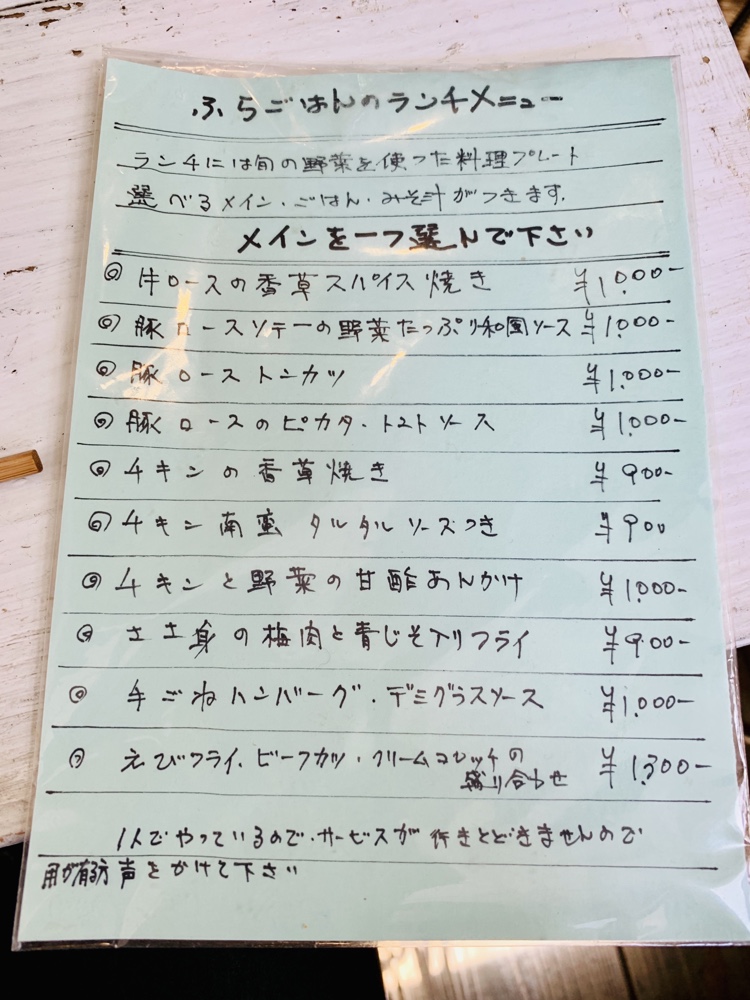 ふらごはんのランチメニュー
ランチには旬の野菜を使った料理プレート
選べるメイン・ごはん・みそ汁がつきます.
メインを一つ選んで下さい
◎ 牛ロースの香草スパイス焼き ¥1,000-
◎ 豚ロースソテーの野菜たっぷり和風ソース ¥1,000-
◎ 豚ローストンカツ ¥1,000-
◎ 豚ロースのピカタ・トマトソース ¥1,000-
◎ チキンの香草焼き ¥900-
◎ チキン南蛮 タルタルソースつき ¥900
◎ チキンと野菜の甘酢あんかけ ¥1,000-
◎ ささ身の梅肉と青じそ入りフライ ¥900-
◎ 手ごねハンバーグ・デミグラスソース ¥1,000-
◎ えびフライ・ビーフカツ・クリームコロッケの ¥1,300-
盛り合わせ
1人でやっているので・サービスが行きとどきませんので
用が有る方声をかけて下さい